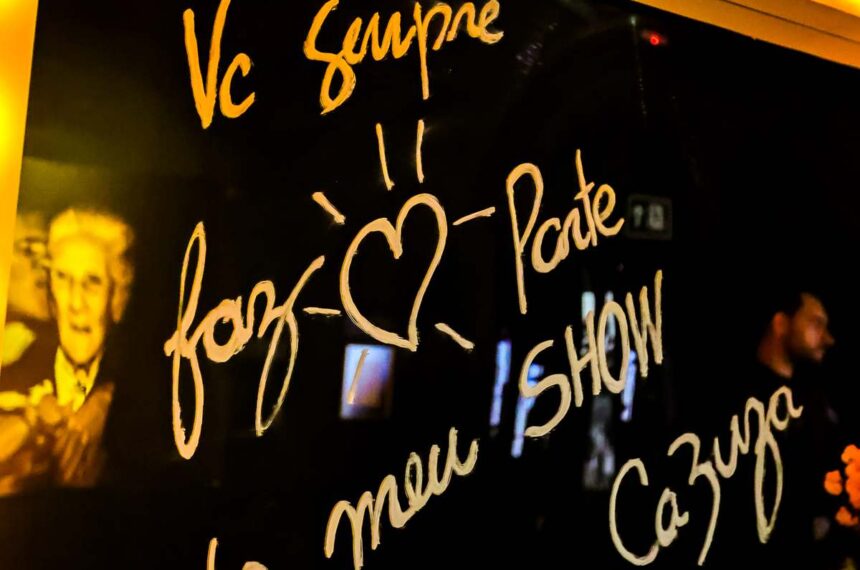 Vc Sempre
faz Parte
meu SHOW
Cazuza